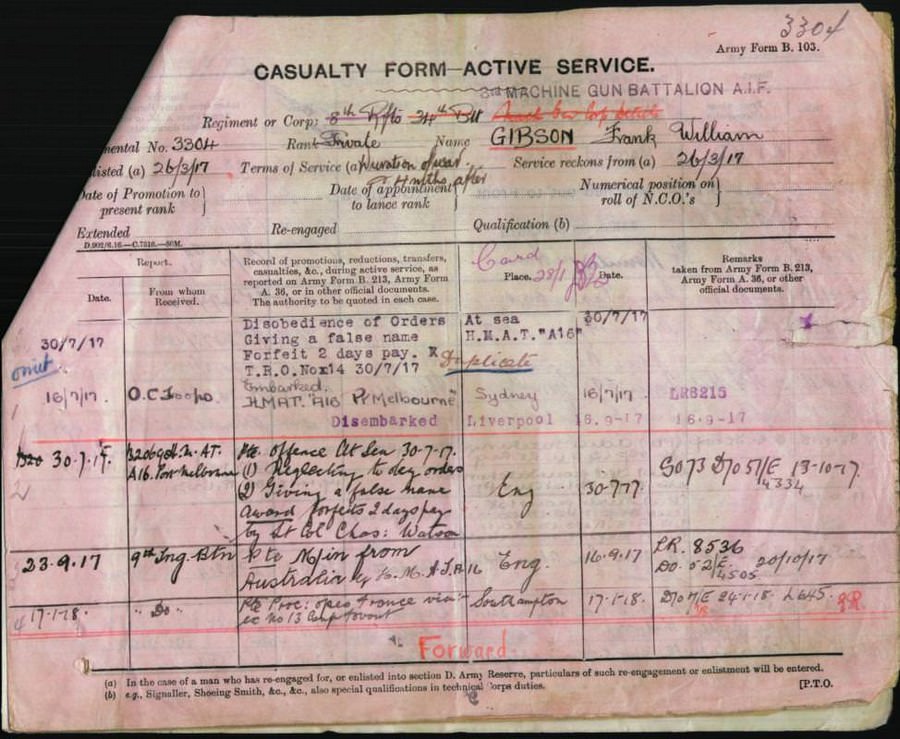 3304
Army Form B. 103.
CASUALTY FORM—ACTIVE SERVICE.
3rd MACHINE GUN BATTALION A.I.F.
Regiment or Corp: 8th Rfts 34th Btt
mental No. 3304 Rank Private Name GIBSON Frank William
listed (a) 26/3/17 Terms of Service (a) Duration of war Service reckons from (a) 26/3/17
4 mths after
Date of Promotion to present rank } Date of appointment to lance rank } Numerical position on roll of N.C.O.'s }
Extended Re-engaged Qualification (b)
D.902/6.16.—C.7316.—50M.
Report.
Date.
From whom Received.
Record of promotions, reductions, transfers,
casualties, &c., during active service, as
reported on Army Form B. 213, Army Form
A. 36, or in other official documents.
The authority to be quoted in each case.
Card
Place. 28/1
Date.
Remarks
taken from Army Form B. 213,
Army Form A. 36, or other
official documents.
30/7/17
omit
Disobedience of Orders
Giving a false name
Forfeit 2 days pay. X
T.R.O. No 14 30/7/17
At sea
H.M.A.T. "A16"
Duplicate
30/7/17
1 16/7/17. O.C. Troops Embarked.
HMAT. "A16 Pt Melbourne" Sydney 16/7/17 LR8215
Disembarked Liverpool 16.9-17 16.9-17
2 30.7.17. H.M.AT.
A16. Port Melbourne
Pte. offence At Sea 30-7-17.
(1) Neglecting to obey orders
(2) Giving a false name
Award forfeits 2 days pay
by Lt Col Chas: Watson
Eng 30-7-17 SO73 DO 51/E 13-10-17.
4334
3 23.9.17 9th Tng. Btn Pte M/in from
Australia by H.M.A.T. A16 Eng. 16.9.17 LR. 8536
DO. 52/E. 20/10/17
4505
4 17-1-18. " Do " Pte Proc: o'seas France via Southampton 17.1.18. DO 7/E 24-1-18. L645.
Forward
(a) In the case of a man who has re-engaged for, or enlisted into section D. Army Reserve, particulars of such re-engagement or enlistment will be entered.
(b) e.g., Signaller, Shoeing Smith, &c., &c., also special qualifications in technical Corps duties. [P.T.O.